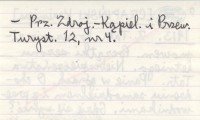 - Prz. Zdroj.-Kąpiel. i Przew.
Turyst. 12, nr 4.